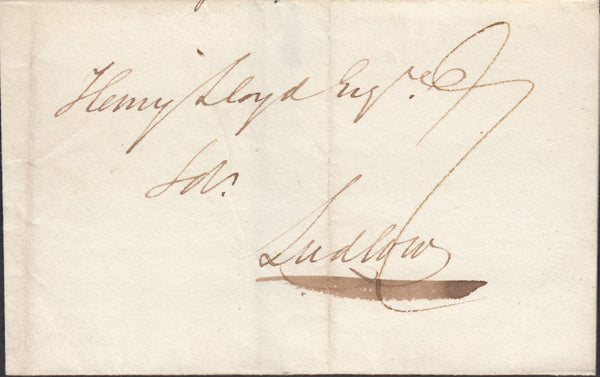 Henry Lloyd Esqre
Solr
Ludlow